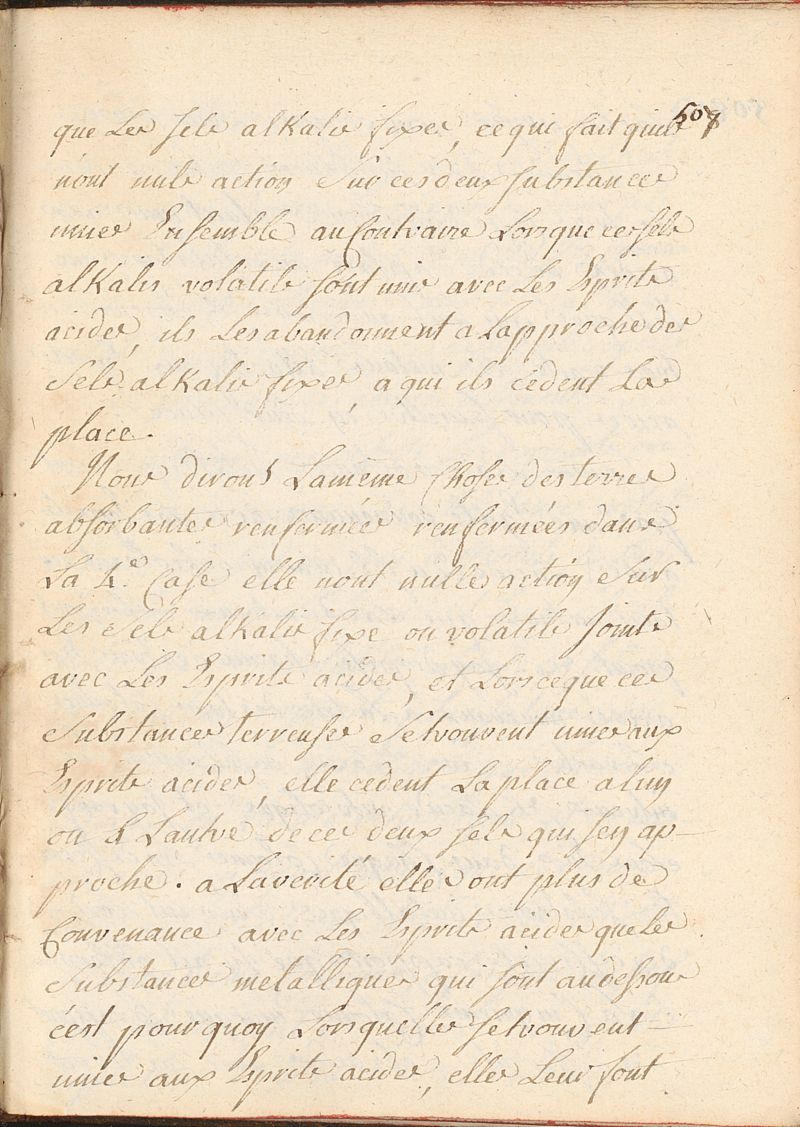 507
que Les sels alKalis fixes, ce qui fait quils
n'ont nuls action Sur ces deux substances
unies Ensemble au Contraire Lorsque ces sels
alKalis volatils sont unis avec Les Esprits
acides, ils Les abandonnent a Lapproche des
Sels alKalis fixes, a qui ils cedent La
place.
Nous dirons Lamême Chose des terres
absorbantes renfermées renfermées dans
La 4.e Case elle nont nulles action Sur
Les Sels alKalis fixe ou volatils Joints
avec Les Esprits acides, et Lorsceque ces
Substances terreuses Setrouvent unies aux
Esprits acides, elle cedent La place a luy
ou a Lautre de ces deux sels qui sen ap-
proche. a Laverité elles ont plus de
Convenance avec Les Esprits acides que les
Substances metalliques qui sont audessous
c'est pourquoy Lorsquelles setrouvent
unies aux Esprits acides, elles Leur font